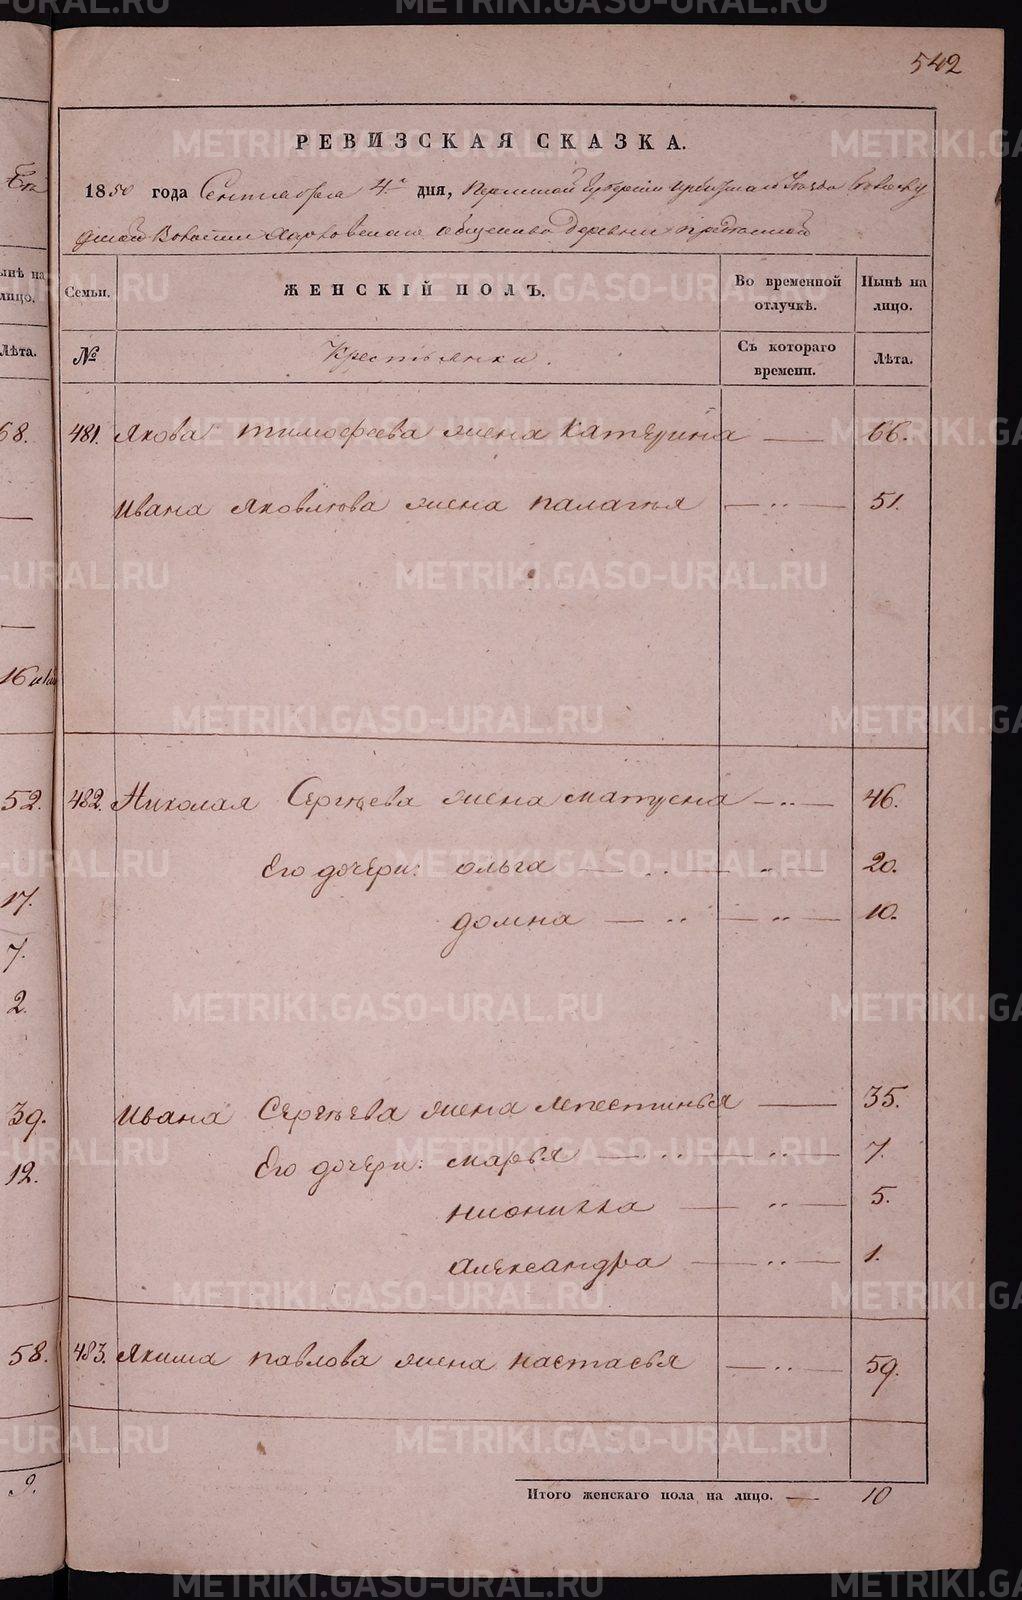 542
РЕВИЗСКАЯ СКАЗКА.
1850 года Сентября 4го дня, Пермской Губернии Ирбитскаго Уезда
Волости Харловскаго общества Деревни
Семьи. ЖЕНСКІЙ ПОЛЪ. Во временной отлучкѣ. Нынѣ на лицо.
№ Крестьянки. Съ котораго времени. Лѣта.
481. Якова тимофеева жена Катерина — 66.
Ивана Яковлева жена палагья — „ — 51.
482. Николая Сергѣева жена матрена — „ — 46.
Его дочери: ольга — „ — „ — 20.
домна — „ — „ — 10.
Ивана Сергѣева жена — 35.
Его дочери: марья — „ — „ — 7.
— „ — 5.
александра — „ — 1.
483. Якима павлова жена настасья — „ — 59.
Итого женскаго пола на лицо. — 10
ынѣ на
лицо.
Лѣта.
68.
—
—
16
52.
17.
7.
2.
39.
12.
58.
9.
METRIKI.GASO-URAL.RU